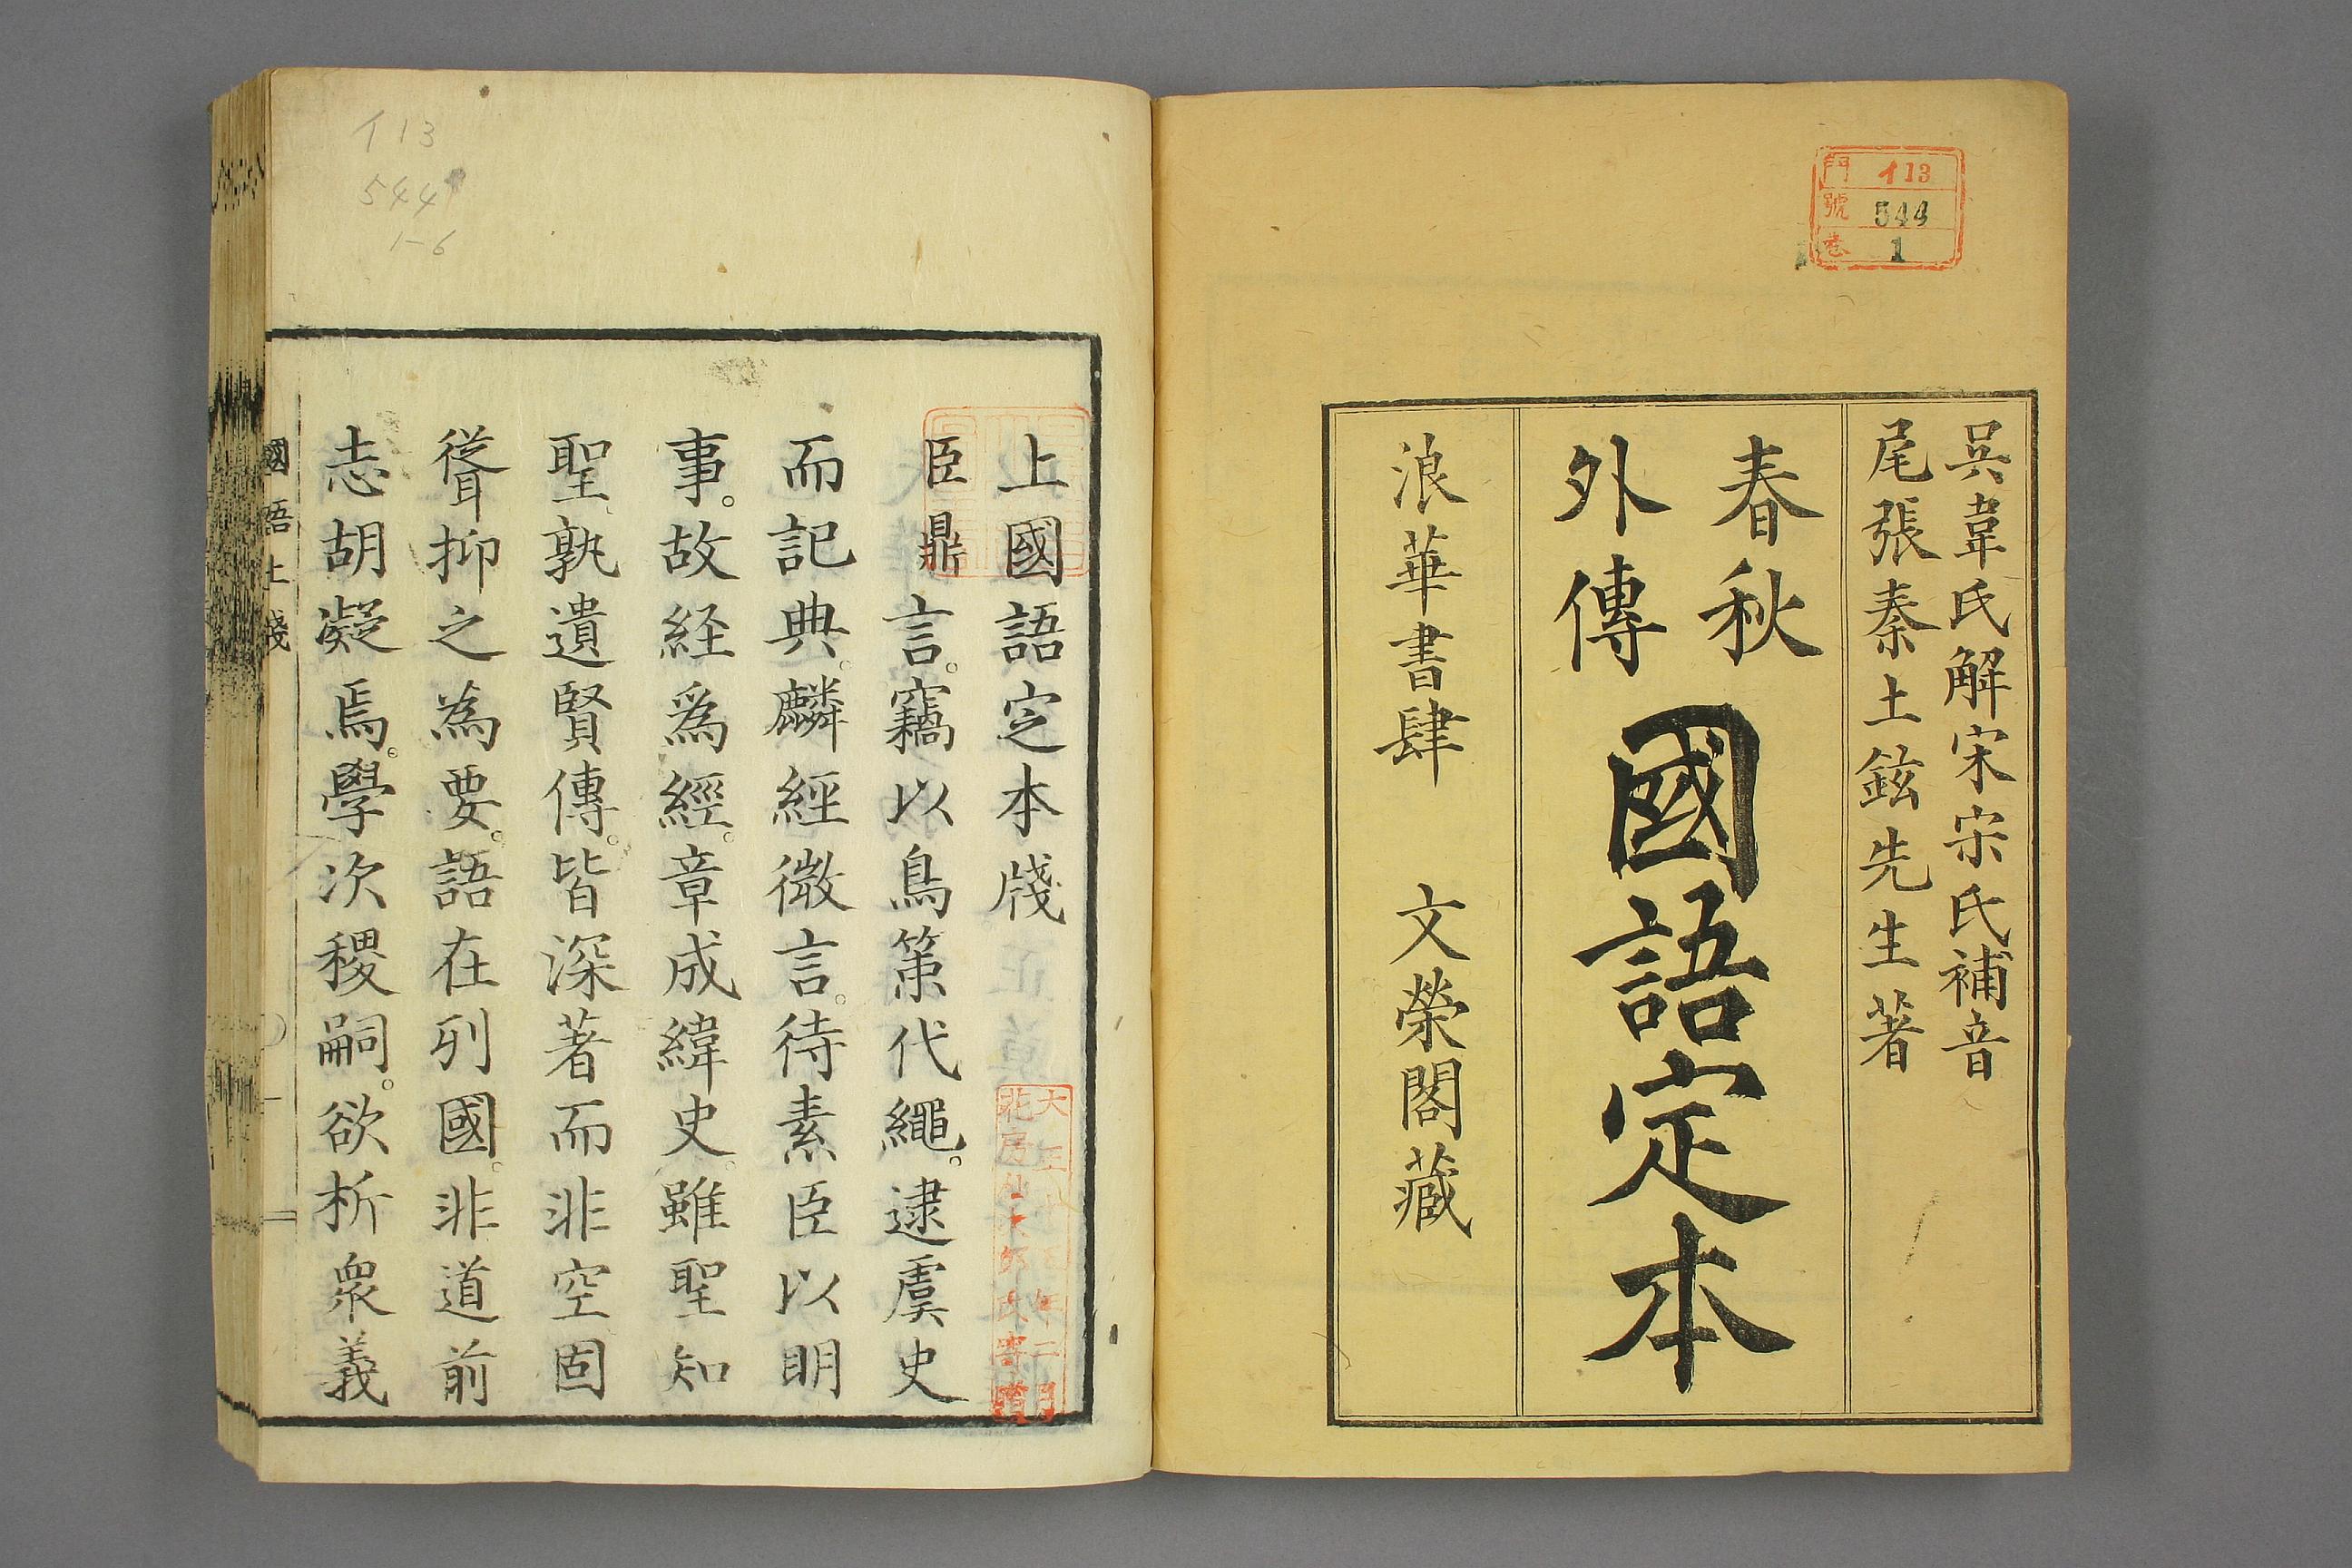 門 イ13
號 544
卷 1
吳韋氏解宋宋氏補音
尾張秦士鉉先生著
春秋
外傳
國語定本
浪華書肆 文榮閣藏
イ13
544
1-6
上國語定本牋
臣鼎言。竊以鳥策代繩。逮虞史
而記典。麟經微言。待素臣以明
事。故経爲經。章成緯史。雖聖知
聖、孰遺賢傳。皆深著而非空固
聳抑之為要。語在列國。非道前
志胡凝焉。學次稷嗣。欲析衆義
國語上牋
一